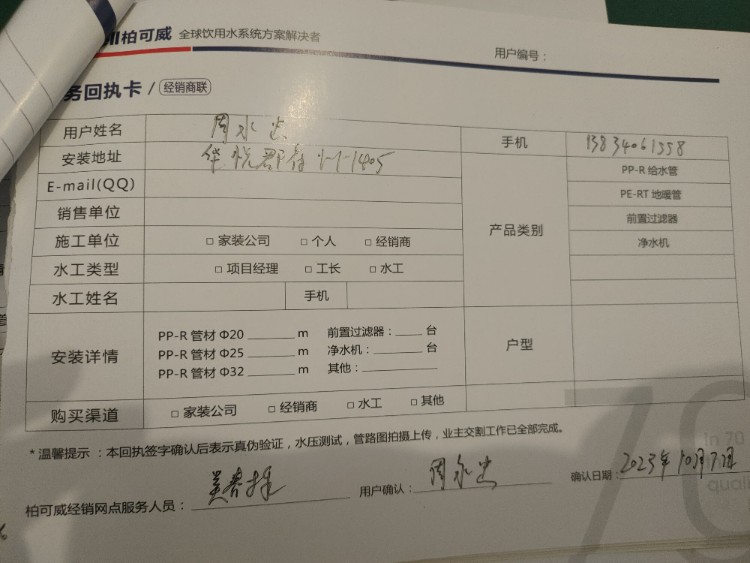 柏可威 全球饮用水系统方案解决者
用户编号：
务回执卡 / 经销商联
用户姓名 周永忠 手机 13834061358
安装地址 华悦郡府 1-1-1405
E-mail(QQ)
销售单位
施工单位 □ 家装公司 □ 个人 □ 经销商
水工类型 □ 项目经理 □ 工长 □ 水工
水工姓名 手机
产品类别
PP-R 给水管
PE-RT 地暖管
前置过滤器
净水机
安装详情
PP-R 管材 Φ20 ______ m 前置过滤器：____ 台
PP-R 管材 Φ25 ______ m 净水机：______ 台
PP-R 管材 Φ32 ______ m 其他：______
户型
购买渠道 □ 家装公司 □ 经销商 □ 水工 □ 其他
* 温馨提示：本回执签字确认后表示真伪验证，水压测试，管路图拍摄上传，业主交割工作已全部完成。
柏可威经销网点服务人员： 用户确认：周永忠 确认日期：2023年10月7日
70
in 70
quali